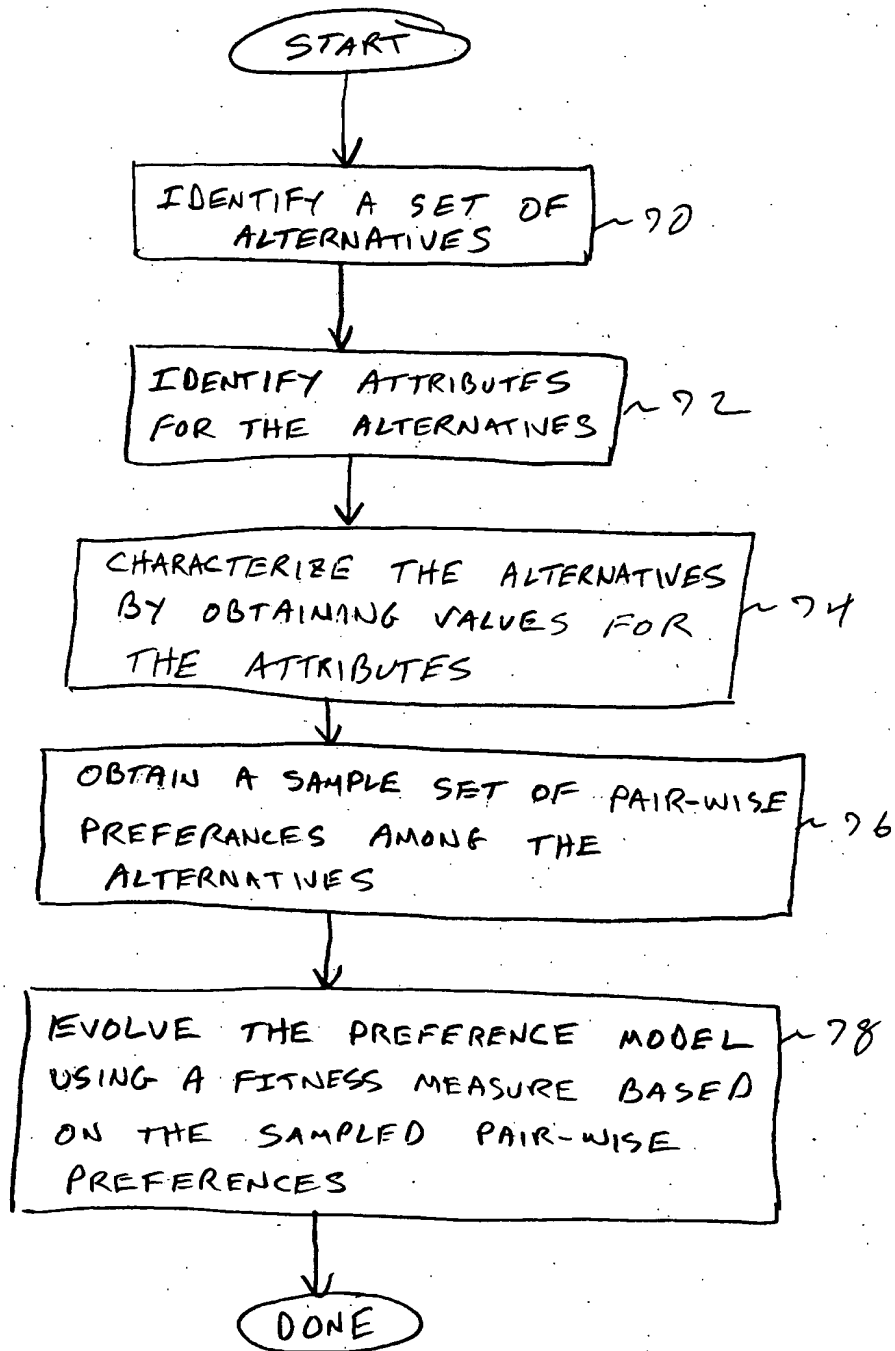 START
IDENTIFY A SET OF
ALTERNATIVES
~70
IDENTIFY ATTRIBUTES
FOR THE ALTERNATIVES
~72
CHARACTERIZE THE ALTERNATIVES
BY OBTAINING VALUES FOR
THE ATTRIBUTES
~74
OBTAIN A SAMPLE SET OF PAIR-WISE
PREFERANCES AMONG THE
ALTERNATIVES
~76
EVOLVE THE PREFERENCE MODEL
USING A FITNESS MEASURE BASED
ON THE SAMPLED PAIR-WISE
PREFERENCES
~78
DONE